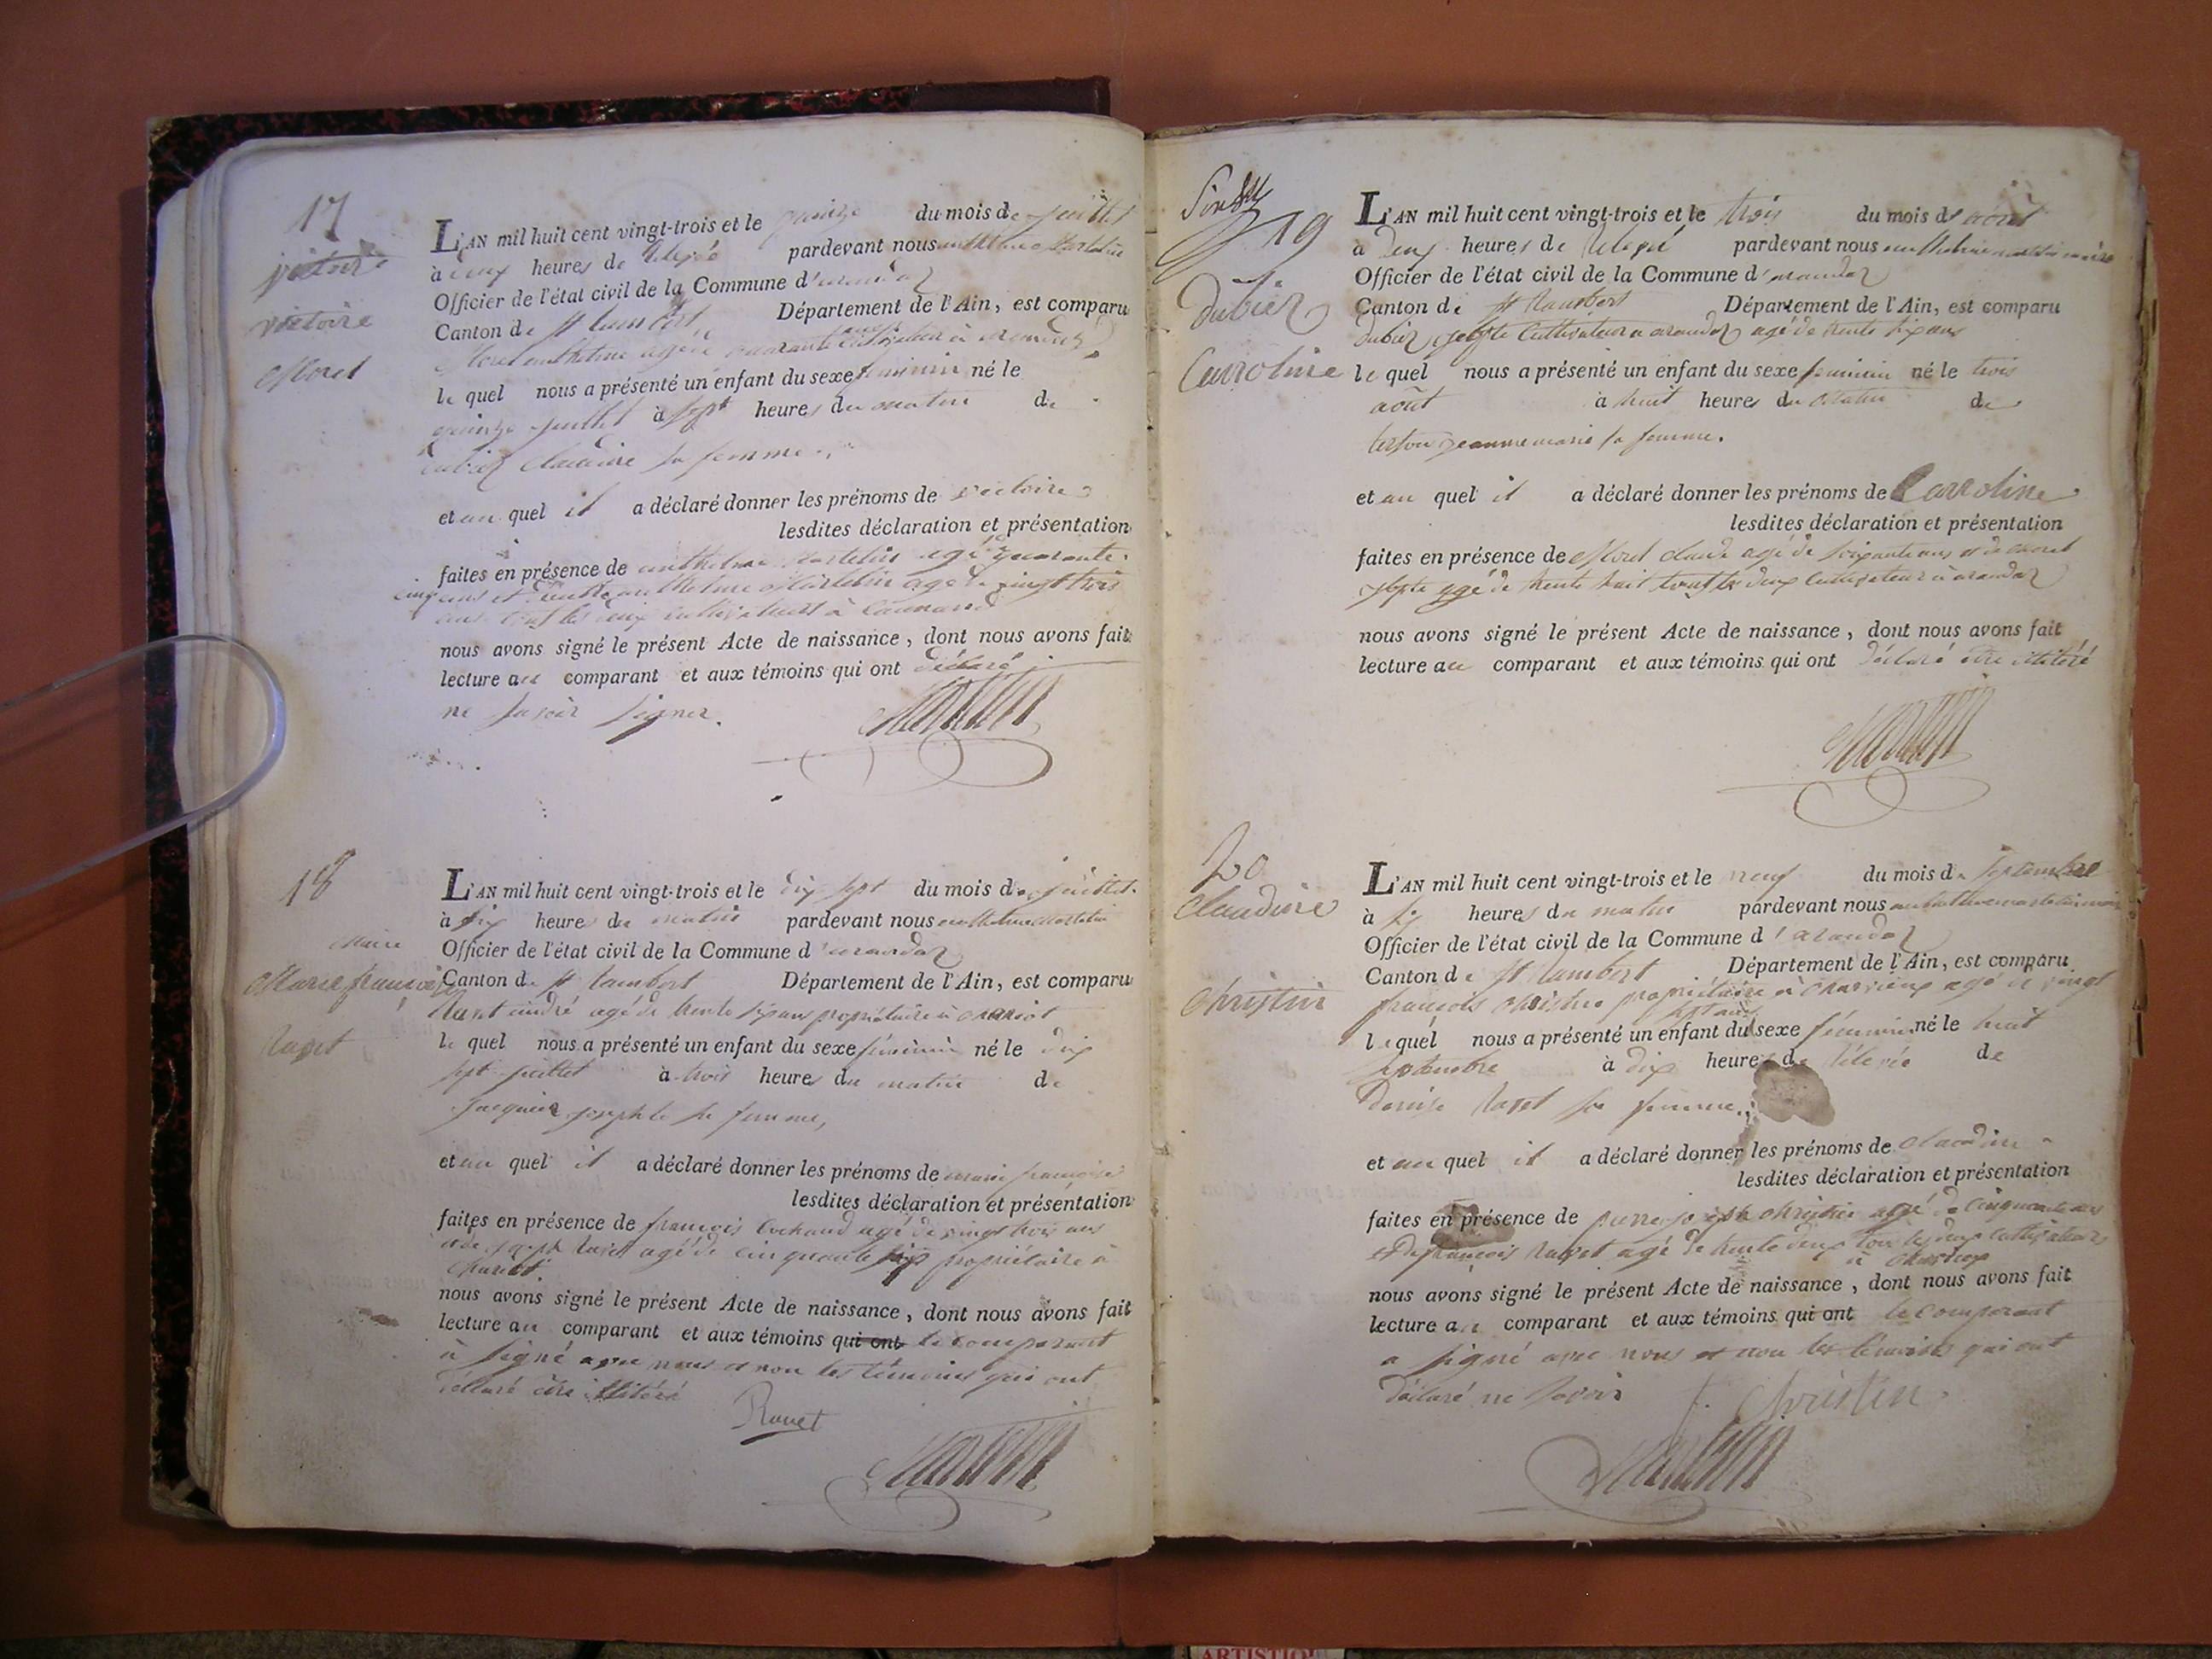 17
victoire
victoire
Moret
L'AN mil huit cent vingt-trois et le quinze du mois de juillet
à deux heures de relevée pardevant nous anthelme Martelin
Officier de l'état civil de la Commune d'arandaz
Canton de st rambert Département de l'Ain, est comparu
Moret anthelme agé de quarante ans cultivateur à arandaz
le quel nous a présenté un enfant du sexe feminin né le
quinze juillet à sept heures du matin de
dubiez claudine sa femme
et au quel il a déclaré donner les prénoms de victoire
lesdites déclaration et présentation
faites en présence de anthelme Martelin agé de quarante
cinq ans et anthelme Martelin agé de vingt trois
ans tout les deux cultivateurs à
nous avons signé le présent Acte de naissance, dont nous avons fait
lecture au comparant et aux témoins qui ont déclaré
ne savoir signer.
Martelin
18
Marie françoise
Ravet
L'AN mil huit cent vingt-trois et le dix sept du mois de juillet
à six heures du matin pardevant nous anthelme Martelin
maire
Officier de l'état civil de la Commune d'arandaz
Canton de st rambert Département de l'Ain, est comparu
Ravet andré agé de trente six ans propriétaire à
le quel nous a présenté un enfant du sexe féminin né le dix
sept juillet à trois heures du matin de
Jacquier josephte sa femme,
et au quel il a déclaré donner les prénoms de marie françoise
lesdites déclaration et présentation
faites en présence de françois cochaud agé de vingt trois ans
et de joseph Ravet agé de cinquante six propriétaire à
nous avons signé le présent Acte de naissance, dont nous avons fait
lecture au comparant et aux témoins qui ont le comparant
a signé avec nous et non les témoins qui ont
déclaré être illitéré
Ravet
Martelin
19
Dubiez
Carroline
L'AN mil huit cent vingt-trois et le trois du mois d'août
à deux heures de relevé pardevant nous anthelme martelin maire
Officier de l'état civil de la Commune d'arandaz
Canton de st Rambert Département de l'Ain, est comparu
dubiez cultivateur a arandaz agé de trente six ans
le quel nous a présenté un enfant du sexe feminin né le trois
août à huit heures du matin de
jeanne marie sa femme.
et au quel il a déclaré donner les prénoms de Carroline
lesdites déclaration et présentation
faites en présence de Moret claude agé de soixante ans et de moret
agé de trente huit tout les deux cultivateur à arandaz
nous avons signé le présent Acte de naissance, dont nous avons fait
lecture au comparant et aux témoins qui ont déclaré être illitéré
Martelin
20
Claudine
Christin
L'AN mil huit cent vingt-trois et le neuf du mois de septembre
à six heures du matin pardevant nous anthelme martelin maire
Officier de l'état civil de la Commune d'arandaz
Canton de st rambert Département de l'Ain, est comparu
françois christin propriétaire à agé de vingt
sept ans
le quel nous a présenté un enfant du sexe féminin né le huit
septembre à dix heures de relevée de
Denise Ravet sa femme.
et au quel il a déclaré donner les prénoms de claudine
lesdites déclaration et présentation
faites en présence de pierre joseph christin agé de cinquante ans
et de françois ravet agé de trente deux tous les deux cultivateurs
nous avons signé le présent Acte de naissance, dont nous avons fait
lecture au comparant et aux témoins qui ont le comparant
a signé avec nous et non les témoins qui ont
déclaré ne savoir f. Christin
Martelin